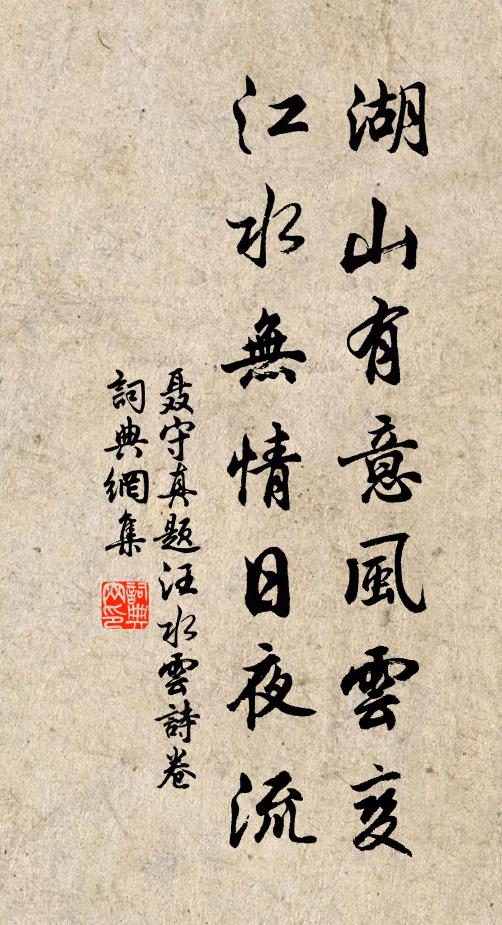 湖山有意風雲変
江水無情日夜流
聂守真题汪水雲詩卷
詞典網集
詞典網印